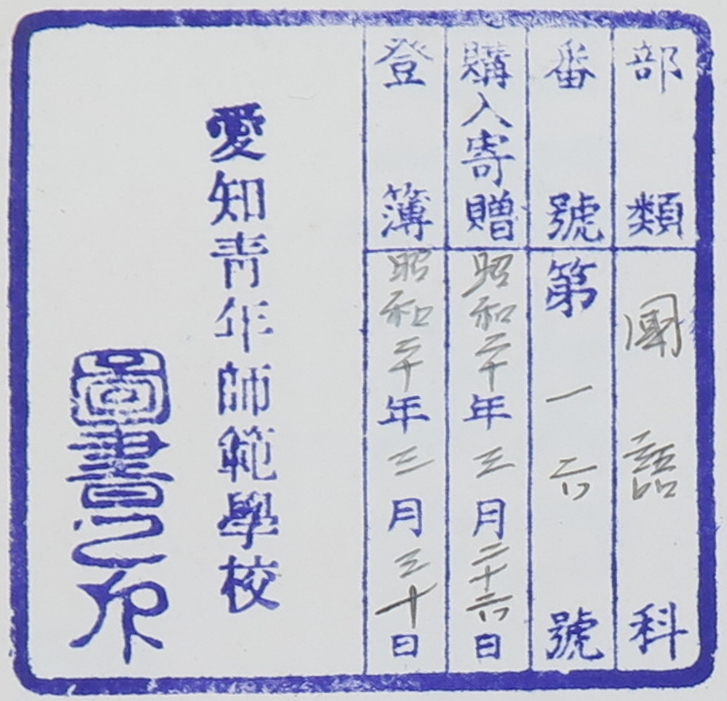 部類 國語科
番號 第一六號
購入寄贈 昭和二十年三月二十六日
登簿 昭和二十年三月三十日
愛知青年師範學校
圖書之印